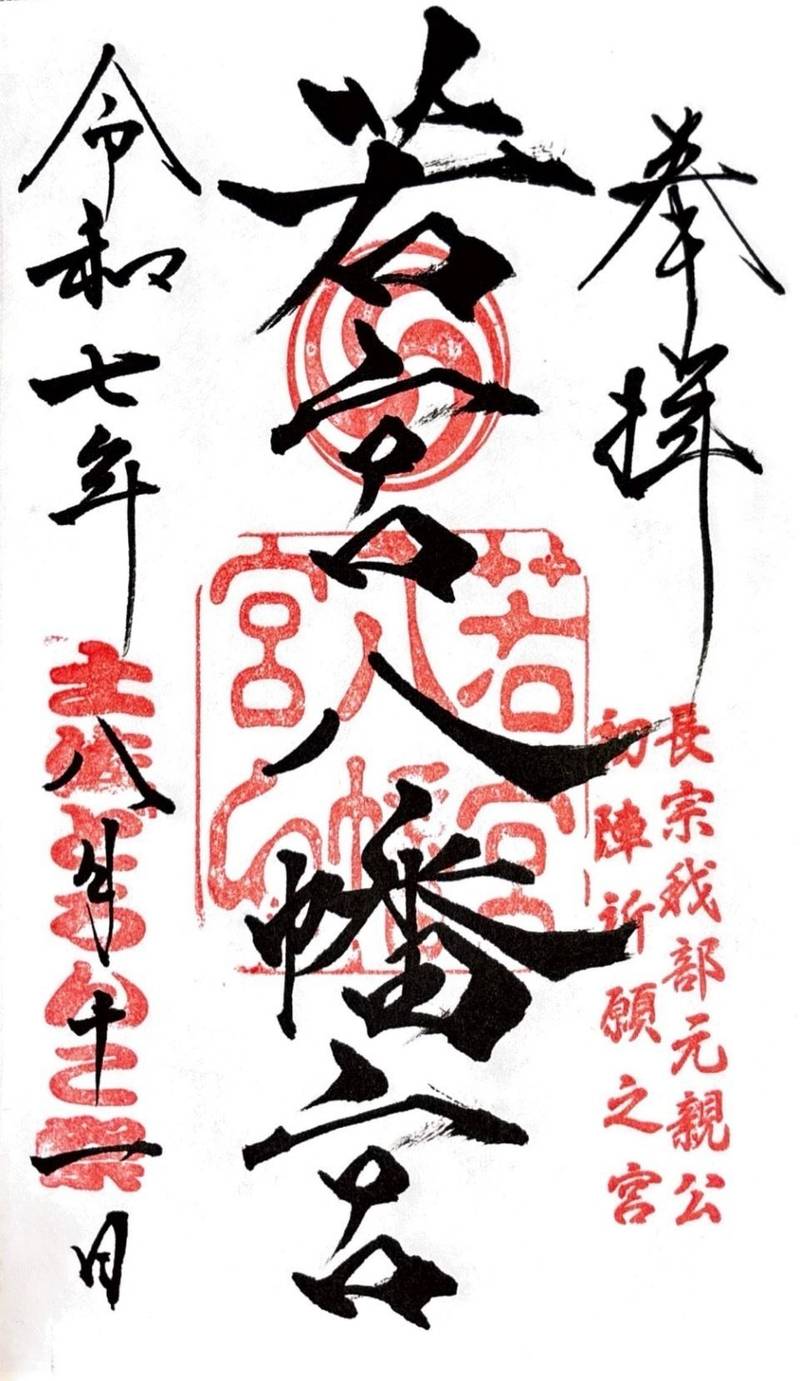 奉拝
長宗我部元親公
初陣祈願之宮
若宮八幡宮
若宮
八幡
宮印
令和七年八月十一日